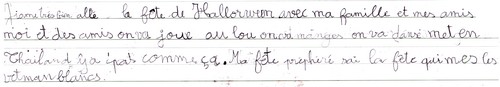 alle la fête de Hallorween avec ma famille et mes amis
moi et des amis on va joue au lou on va mangés on va dansé met en
Thailand iya ipas comme ça. Ma fête prephéré sai la fête qui mes les
vetman blancs.